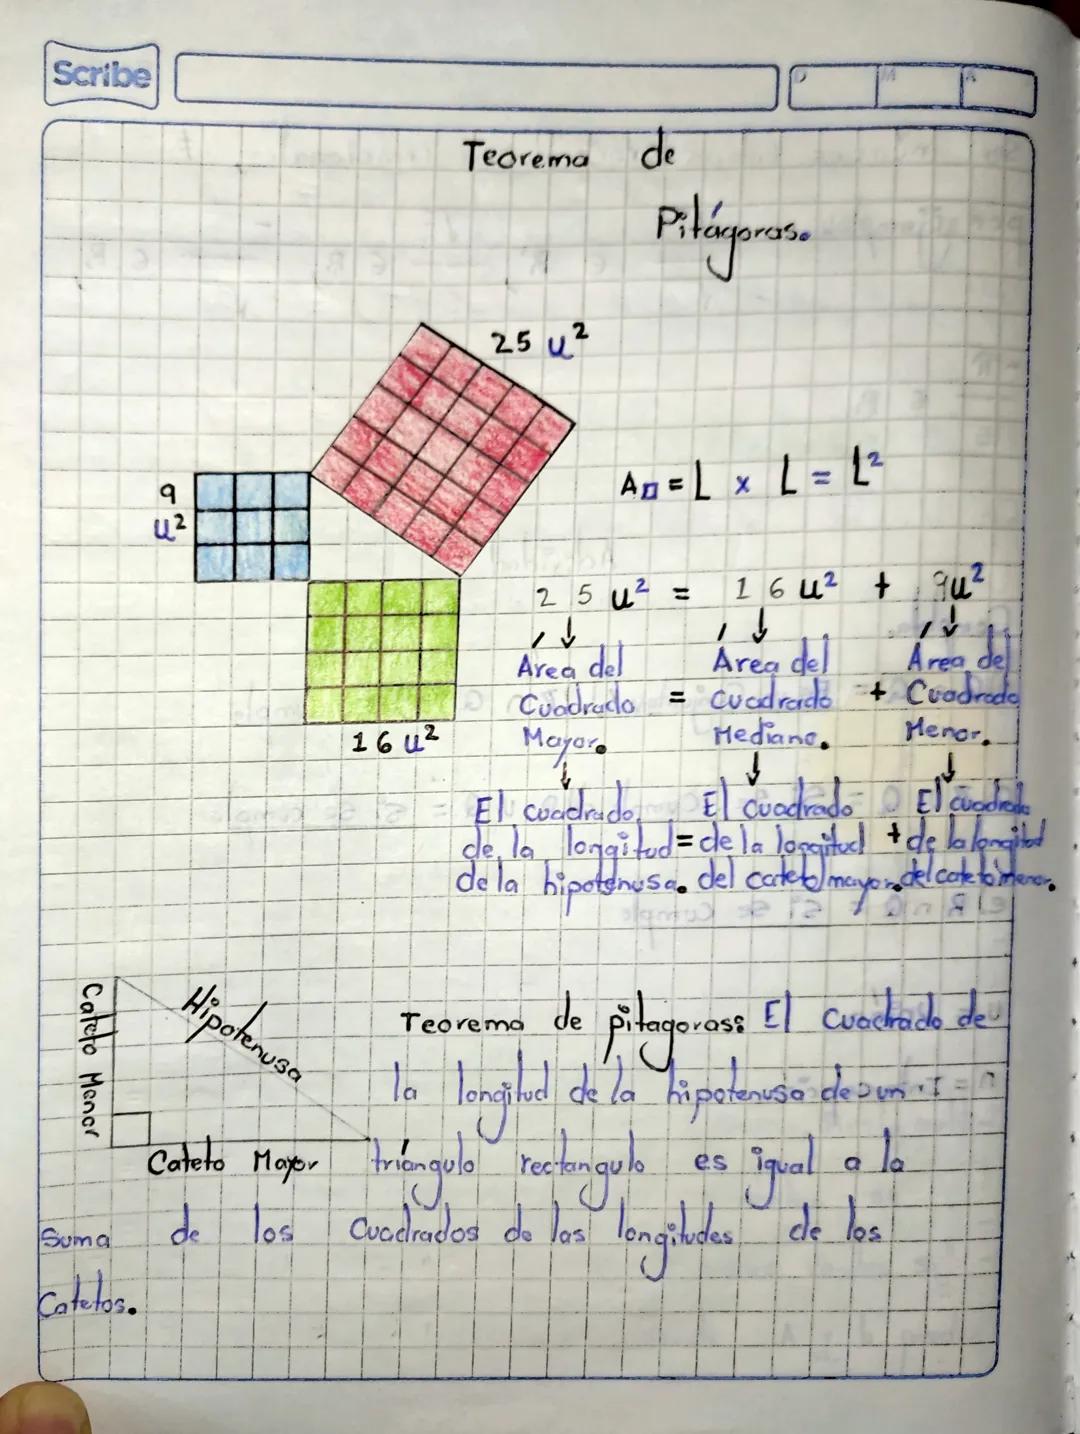 Scribe
D M A
Teorema de
Pitágoras.
25 u²
9
u²
16 u²
A□ = L x L = L²
25 u² = 16 u² + 9u²
Área del Área del Área del
Cuadrado = cuadrado + Cuadrado
Mayor. Mediano. Menor.
El cuadrado El cuadrado El cuadrado
de la longitud = de la longitud + de la longitud
de la hipotenusa. del cateto mayor. del cateto menor.
Cateto Menor
Hipotenusa
Cateto Mayor
Teorema de pitagoras: El Cuadrado de
la longitud de la hipotenusa de un
triángulo rectangulo es igual a la
Suma de los Cuadrados de las longitudes de los
Catetos.